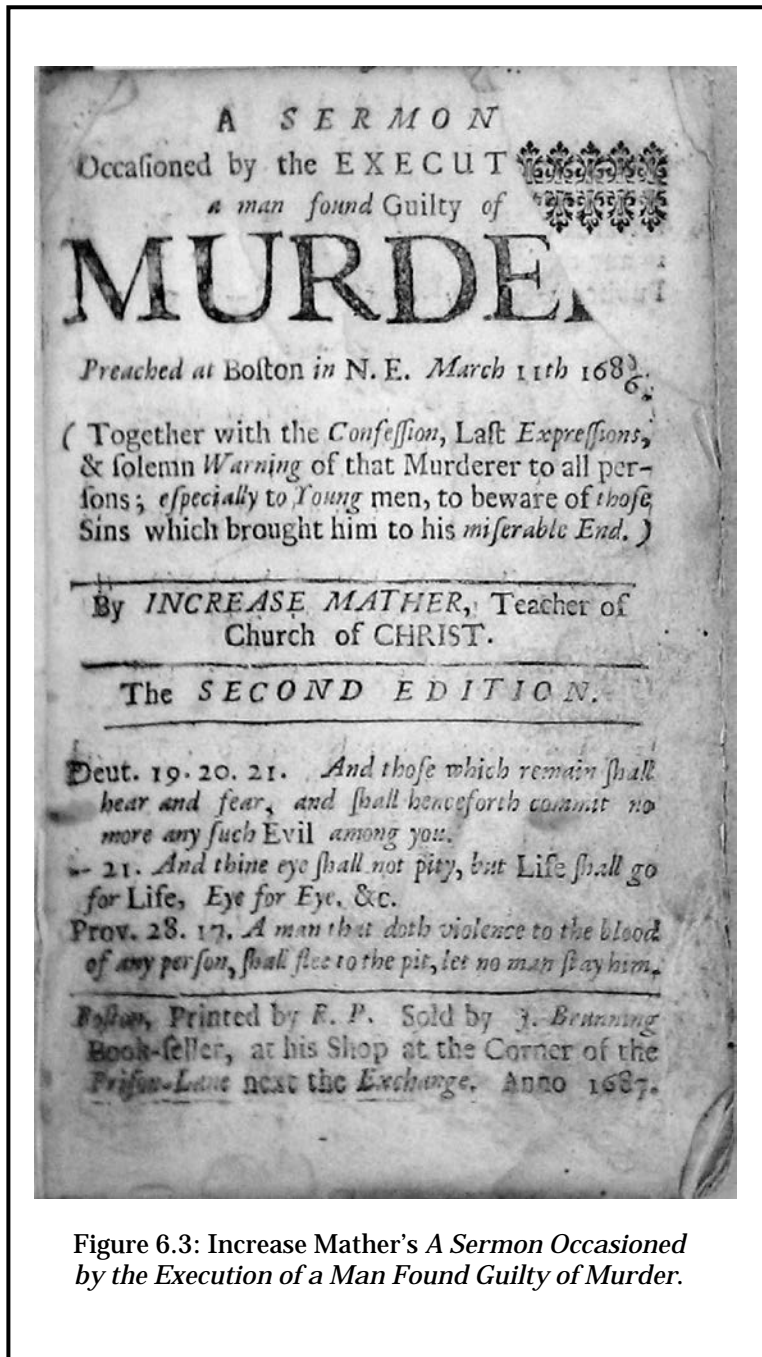 A SERMON
Occaſioned by the EXECUT
a man found Guilty of
MURDE
Preached at Boſton in N. E. March 11th 168 5/6.
( Together with the Confeſſion, Laſt Expreſſions,
& ſolemn Warning of that Murderer to all per-
ſons; eſpecially to Young men, to beware of thoſe
Sins which brought him to his miſerable End. )
By INCREASE MATHER, Teacher of
Church of CHRIST.
The SECOND EDITION.
Deut. 19. 20. 21. And thoſe which remain ſhall
hear and fear, and ſhall henceforth commit no
more any ſuch Evil among you.
-- 21. And thine eye ſhall not pity, but Life ſhall go
for Life, Eye for Eye, &c.
Prov. 28. 17. A man that doth violence to the blood
of any perſon, ſhall flee to the pit, let no man ſtay him.
Boſton, Printed by R. P. Sold by J. Brunning
Book-ſeller, at his Shop at the Corner of the
Priſon-Lane next the Exchange. Anno 1687.
Figure 6.3: Increase Mather’s A Sermon Occasioned
by the Execution of a Man Found Guilty of Murder.